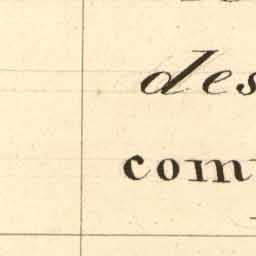 des
com